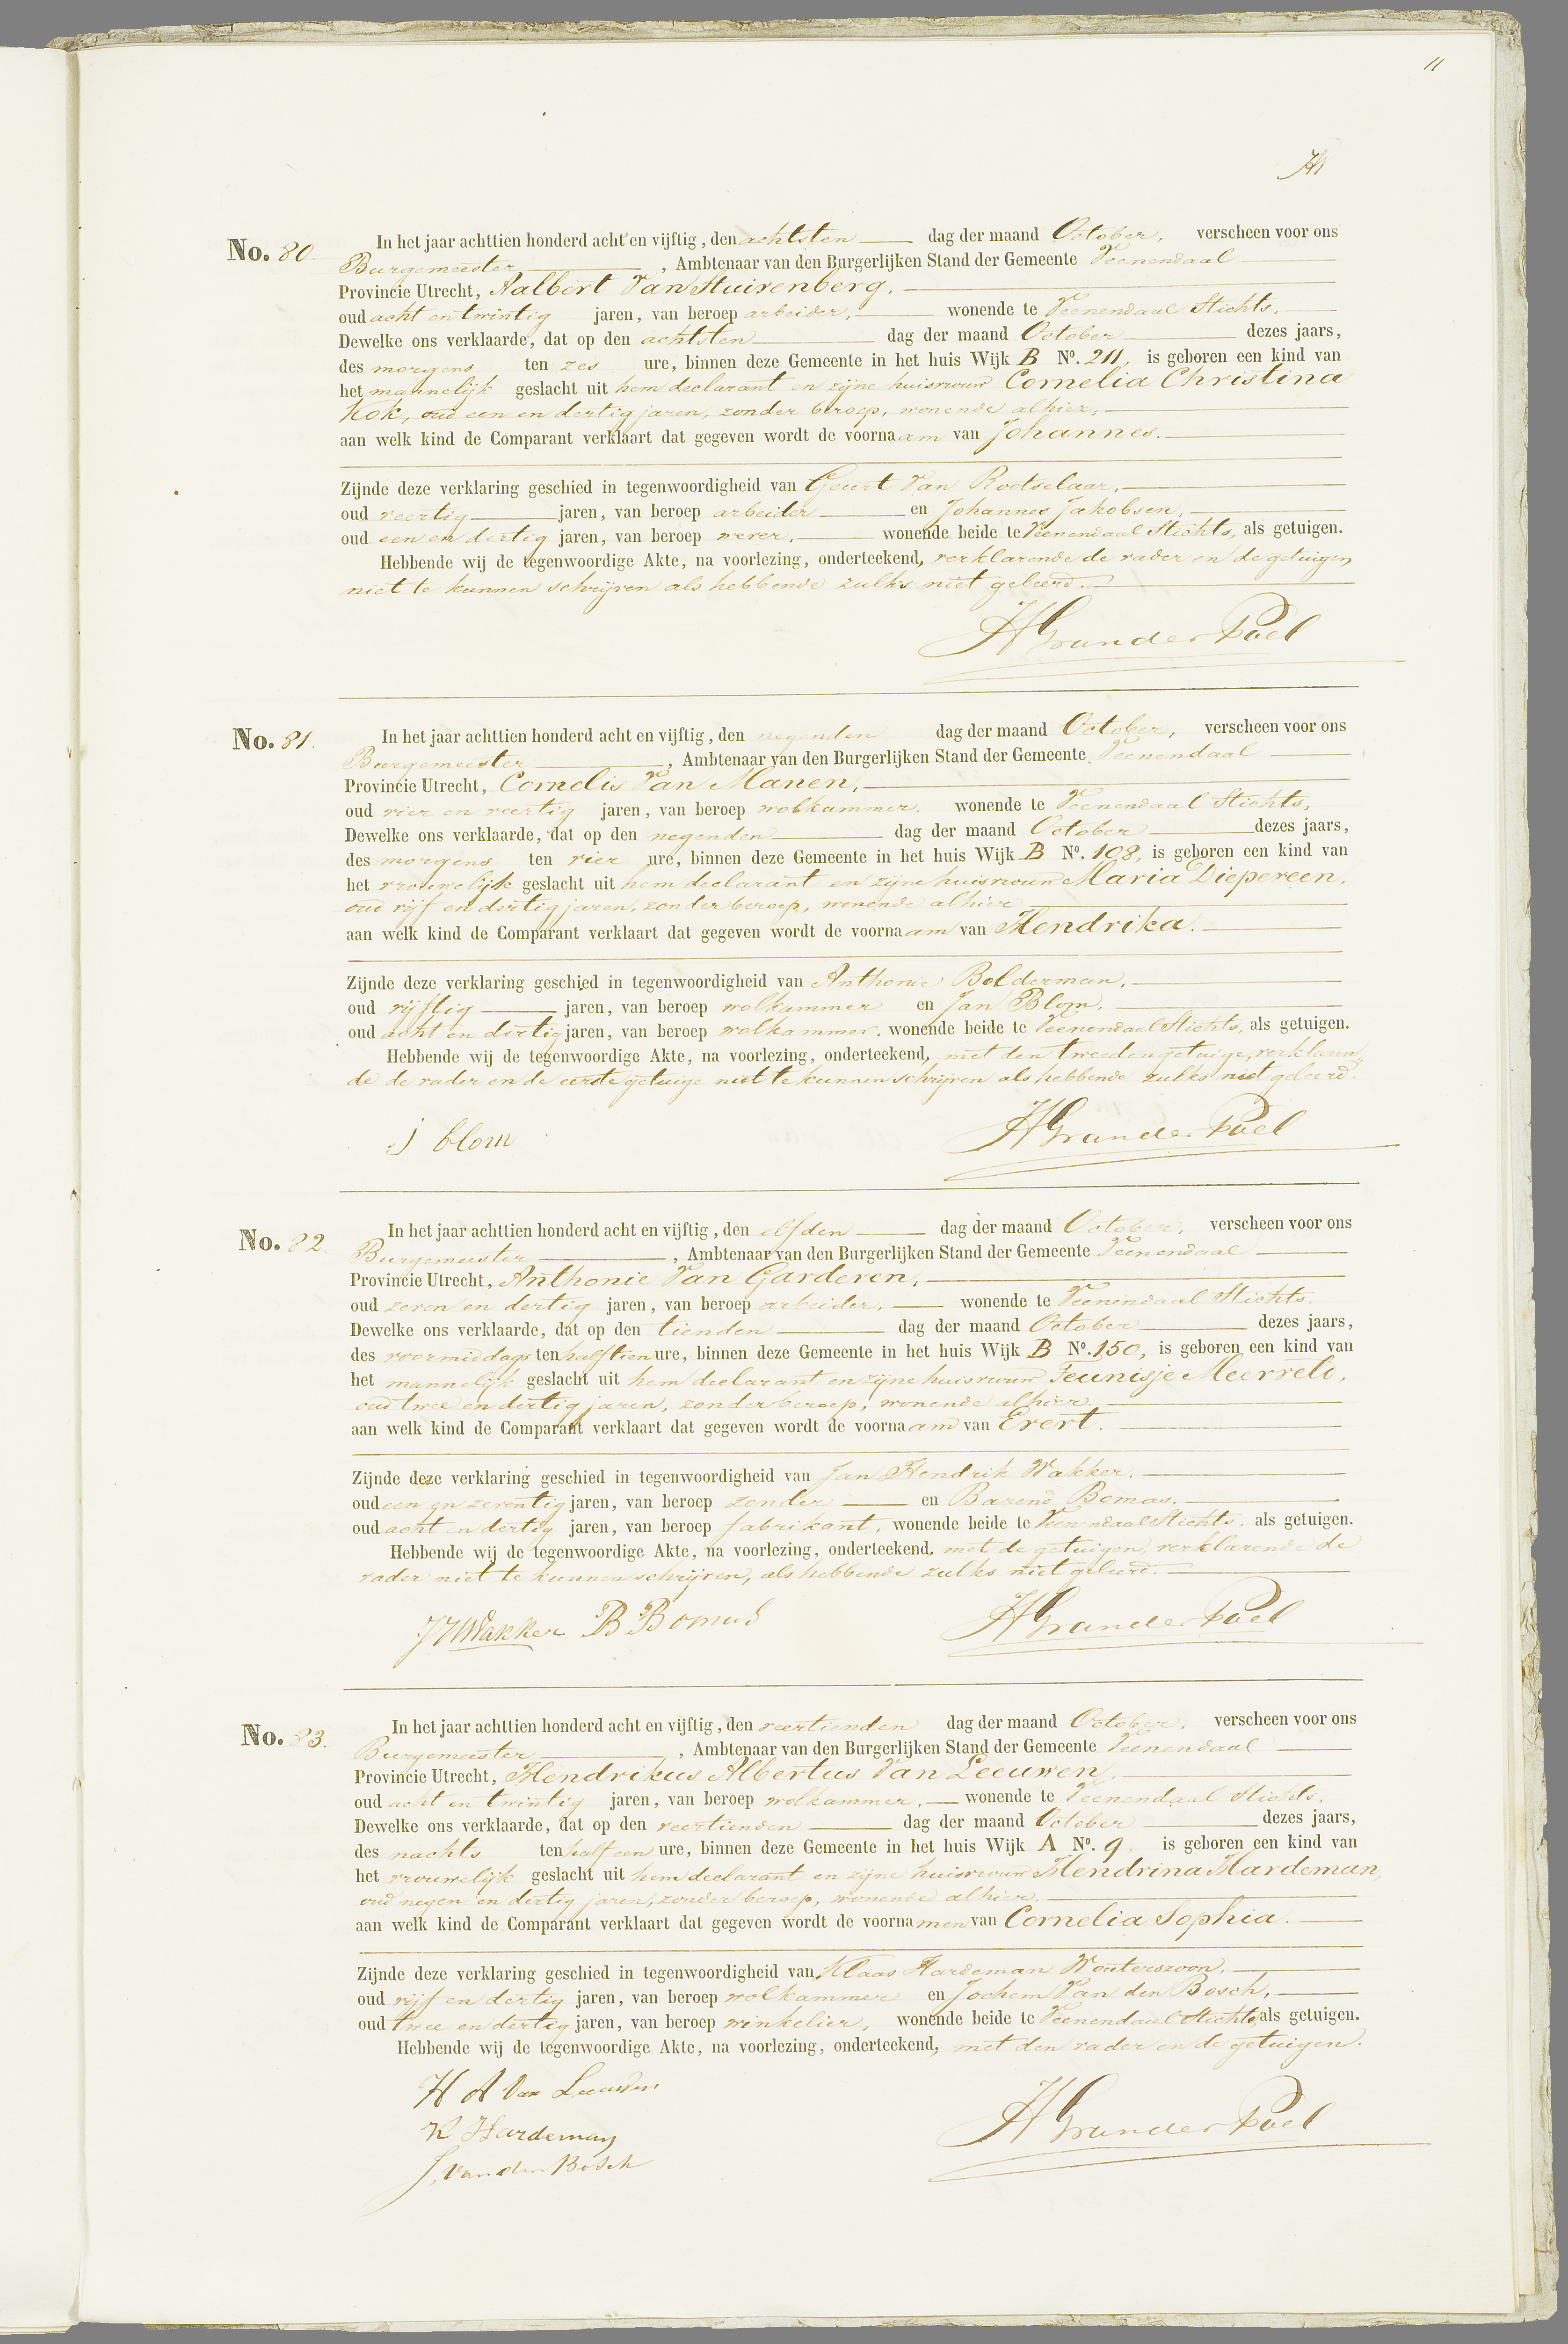 11
No. 80 In het jaar achttien honderd acht en vijftig, den achtsten dag der maand October, verscheen voor ons
Burgemeester, Ambtenaar van den Burgerlijken Stand der Gemeente Veenendaal
Provincie Utrecht, Aalbert Van Stuivenberg,
oud acht en twintig jaren, van beroep arbeider, wonende te Veenendaal Stichts,
Dewelke ons verklaarde, dat op den achtsten dag der maand October dezes jaars,
des morgens ten zes ure, binnen deze Gemeente in het huis Wijk B No. 211, is geboren een kind van
het mannelijk geslacht uit hem declarant en zijne huisvrouw Cornelia Christina
Kok, oud een en dertig jaren, zonder beroep, wonende alhier,
aan welk kind de Comparant verklaart dat gegeven wordt de voornaam van Johannes.
Zijnde deze verklaring geschied in tegenwoordigheid van Geurt Van Rootselaar,
oud veertig jaren, van beroep arbeider en Johannes Jakobsen,
oud een en dertig jaren, van beroep wever, wonende beide te Veenendaal Stichts, als getuigen.
Hebbende wij de tegenwoordige Akte, na voorlezing, onderteekend, verklarende de vader en de getuigen
niet te kunnen schrijven als hebbende zulks niet geleerd.
HG van der Poel
No. 81. In het jaar achttien honderd acht en vijftig, den negenden dag der maand October, verscheen voor ons
Burgemeester, Ambtenaar van den Burgerlijken Stand der Gemeente Veenendaal
Provincie Utrecht, Cornelis Van Manen,
oud vier en veertig jaren, van beroep wolkammer, wonende te Veenendaal Stichts,
Dewelke ons verklaarde, dat op den negenden dag der maand October dezes jaars,
des morgens ten vier ure, binnen deze Gemeente in het huis Wijk B No. 108, is geboren een kind van
het vrouwelijk geslacht uit hem declarant en zijne huisvrouw Maria Diepeveen,
oud vijf en dertig jaren, zonder beroep, wonende alhier
aan welk kind de Comparant verklaart dat gegeven wordt de voornaam van Hendrika.
Zijnde deze verklaring geschied in tegenwoordigheid van Anthonie Bolderman,
oud vijftig jaren, van beroep wolkammer en Jan Blom,
oud acht en dertig jaren, van beroep wolkammer, wonende beide te Veenendaal Stichts, als getuigen.
Hebbende wij de tegenwoordige Akte, na voorlezing, onderteekend, met den tweeden getuige, verklaren„
de de vader en de eerste getuige niet te kunnen schrijven als hebbende zulks niet geleerd.
j blom HG van der Poel
No. 82. In het jaar achttien honderd acht en vijftig, den elfden dag der maand October, verscheen voor ons
Burgemeester, Ambtenaar van den Burgerlijken Stand der Gemeente Veenendaal
Provincie Utrecht, Anthonie Van Garderen,
oud zeven en dertig jaren, van beroep arbeider, wonende te Veenendaal Stichts.
Dewelke ons verklaarde, dat op den tienden dag der maand October dezes jaars,
des voormiddags ten half tien ure, binnen deze Gemeente in het huis Wijk B No. 150, is geboren een kind van
het mannelijk geslacht uit hem declarant en zijne huisvrouw Teunisje Meerveld,
oud twee en dertig jaren, zonder beroep, wonende alhier.
aan welk kind de Comparant verklaart dat gegeven wordt de voornaam van Evert.
Zijnde deze verklaring geschied in tegenwoordigheid van Jan Hendrik Wakker.
oud een en zeventig jaren, van beroep zonder en Barend Bomas,
oud acht en dertig jaren, van beroep fabrikant, wonende beide te Veenendaal Stichts, als getuigen.
Hebbende wij de tegenwoordige Akte, na voorlezing, onderteekend, met de getuigen, verklarende de
vader niet te kunnen schrijven, als hebbende zulks niet geleerd.
JHWakker B Bomas HG van der Poel
No. 83. In het jaar achttien honderd acht en vijftig, den veertienden dag der maand October, verscheen voor ons
Burgemeester, Ambtenaar van den Burgerlijken Stand der Gemeente Veenendaal
Provincie Utrecht, Hendrikus Albertus Van Leeuwen,
oud acht en twintig jaren, van beroep wolkammer, wonende te Veenendaal Stichts,
Dewelke ons verklaarde, dat op den veertienden dag der maand October dezes jaars,
des nachts ten half een ure, binnen deze Gemeente in het huis Wijk A No. 9. is geboren een kind van
het vrouwelijk geslacht uit hem declarant en zijne huisvrouw Hendrina Hardeman,
oud negen en dertig jaren, zonder beroep, wonende alhier,
aan welk kind de Comparant verklaart dat gegeven wordt de voornamen van Cornelia Sophia.
Zijnde deze verklaring geschied in tegenwoordigheid van Klaas Hardeman Wouterszoon,
oud vijf en dertig jaren, van beroep wolkammer en Jochem Van den Bosch,
oud twee en dertig jaren, van beroep winkelier, wonende beide te Veenendaal Stichts, als getuigen.
Hebbende wij de tegenwoordige Akte, na voorlezing, onderteekend, met den vader en de getuigen.
H A Van Leeuwen
K Hardeman HG van der Poel
J, van den Bosch